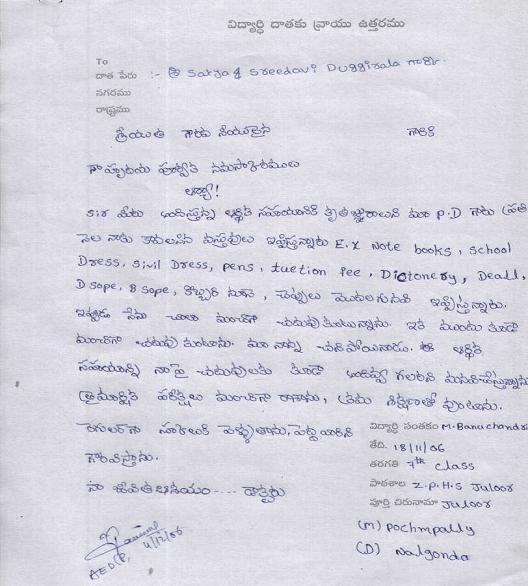 విద్యార్థి దాతకు వ్రాయు ఉత్తరము
To
దాత పేరు :- Satya & Sreedevi Duggirala గారు.
నగరము
రాష్ట్రము
శ్రీయుత గౌరవనీయులైన గారికి
నా హృదయ పూర్వక నమస్కారములు
ఆర్యా!
Sir మీరు అందిస్తున్న ఆర్థిక సహాయానికి కృతజ్ఞురాలిని మా P.D గారు ప్రతి
నెల నాకు కావలసిన వస్తువులు ఇప్పిస్తున్నారు E.X Note books, school
Dress, sivil Dress, pens, tuetion fee, Dictonery, Deall,
D sope, B sope, కొబ్బరి నూనె, చెప్పులు మొదలగునవి ఇప్పిస్తున్నారు.
ఇప్పుడు నేను చాలా మంచిగా చదువుకుంటున్నాను. ఇక ముందు కూడా
మంచిగా చదువు కుంటాను. మా నాన్న చనిపోయినాడు. ఈ ఆర్థిక
సహాయాన్ని నా పై చదువులకు కూడా అందివ్వ గలరని మనవిచేస్తున్నాను
త్రైమాసిక పరీక్షలు మంచిగా రాశాను, క్రమ శిక్షణతో వుంటాను.
రెగులర్‌గా స్కూలుకి వెళ్ళుతాను, పెద్ద వారిని
గౌరవిస్తాను.
నా జీవిత ఆశయం .... డాక్టరు
విద్యార్థి సంతకం M.Banuchandri
తేది. 18/11/06
తరగతి 7th class
పాఠశాల Z.P.H.S Juloor
పూర్తి చిరునామా Juloor
(M) Pochmpally
(D) Nalgonda
4/12/06